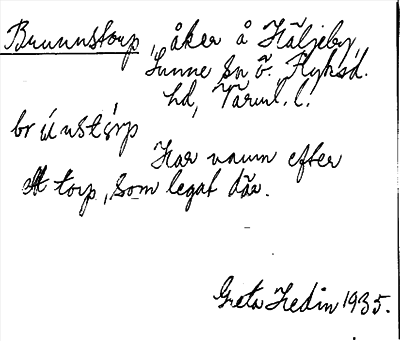 Brunnstorp, åker å Häljeby,
Sunne sn Ö. Fryksd.
hd, Värml. l.
brúnstɔ̀rp
Har namn efter
ett torp, som legat där.
Greta Hedin 1935.